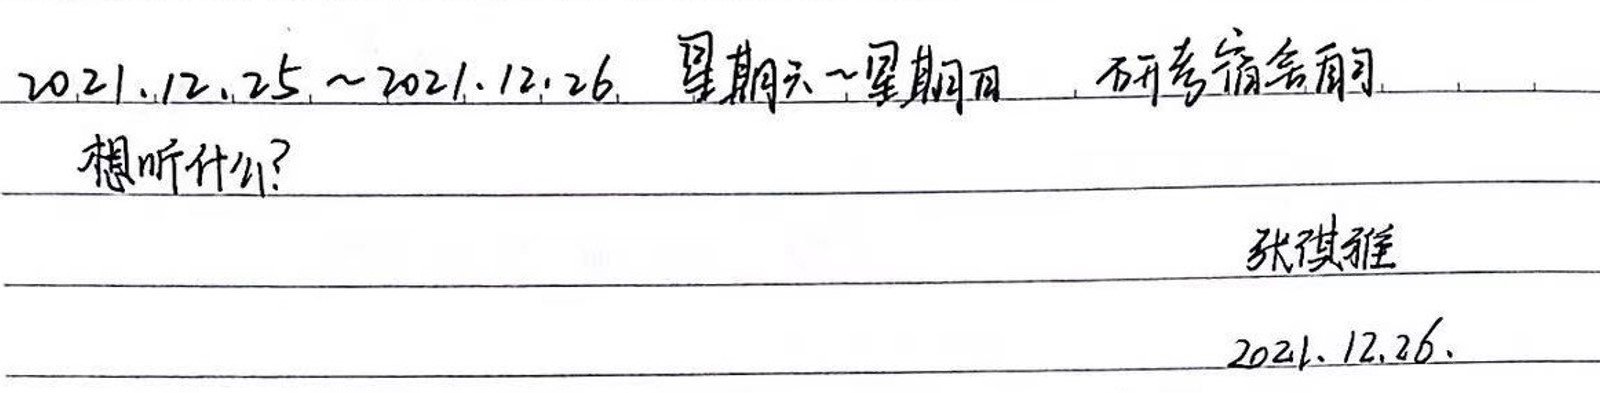 2021.12.25～2021.12.26 星期六～星期日 研考宿舍
想听什么？
张祺雅
2021.12.26.